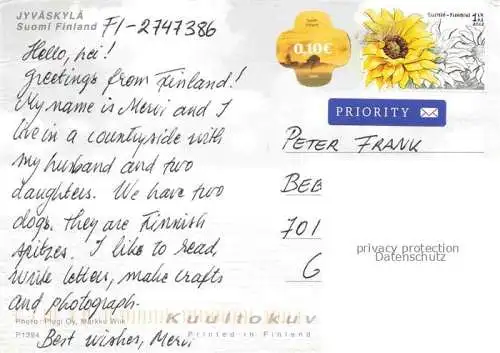 JYVÄSKYLÄ
Suomi Finland
FI-2747386
Hello, hei!
Greetings from Finland!
My name is Mervi and I
live in a countryside with
my husband and two
daughters. We have two
dogs, they are Finnish
spitzes. I like to read,
write letters, make crafts
and photograph.
Best wishes, Mervi
Photo: Plugi Oy, Markku
P1394
Kuultokuv
Printed in Finland
0,10€
Suomi-Finland
PRIORITY
PETER FRANK
BEB
701
G
privacy protection
Datenschutz